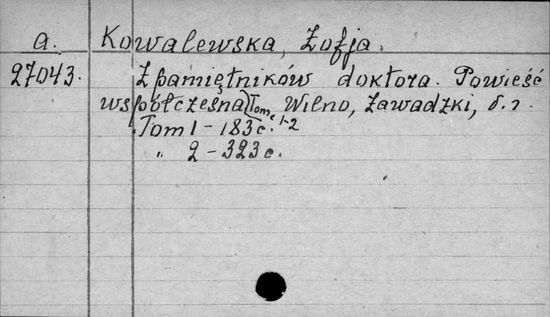 a. Kowalewska, Zofja.
27043. Z pamiętników doktora. Powieść
współczesna, Tom 1-2 Wilno, Zawadzki, б.г.
Tom 1 - 183 с.
" 2 - 323 с.